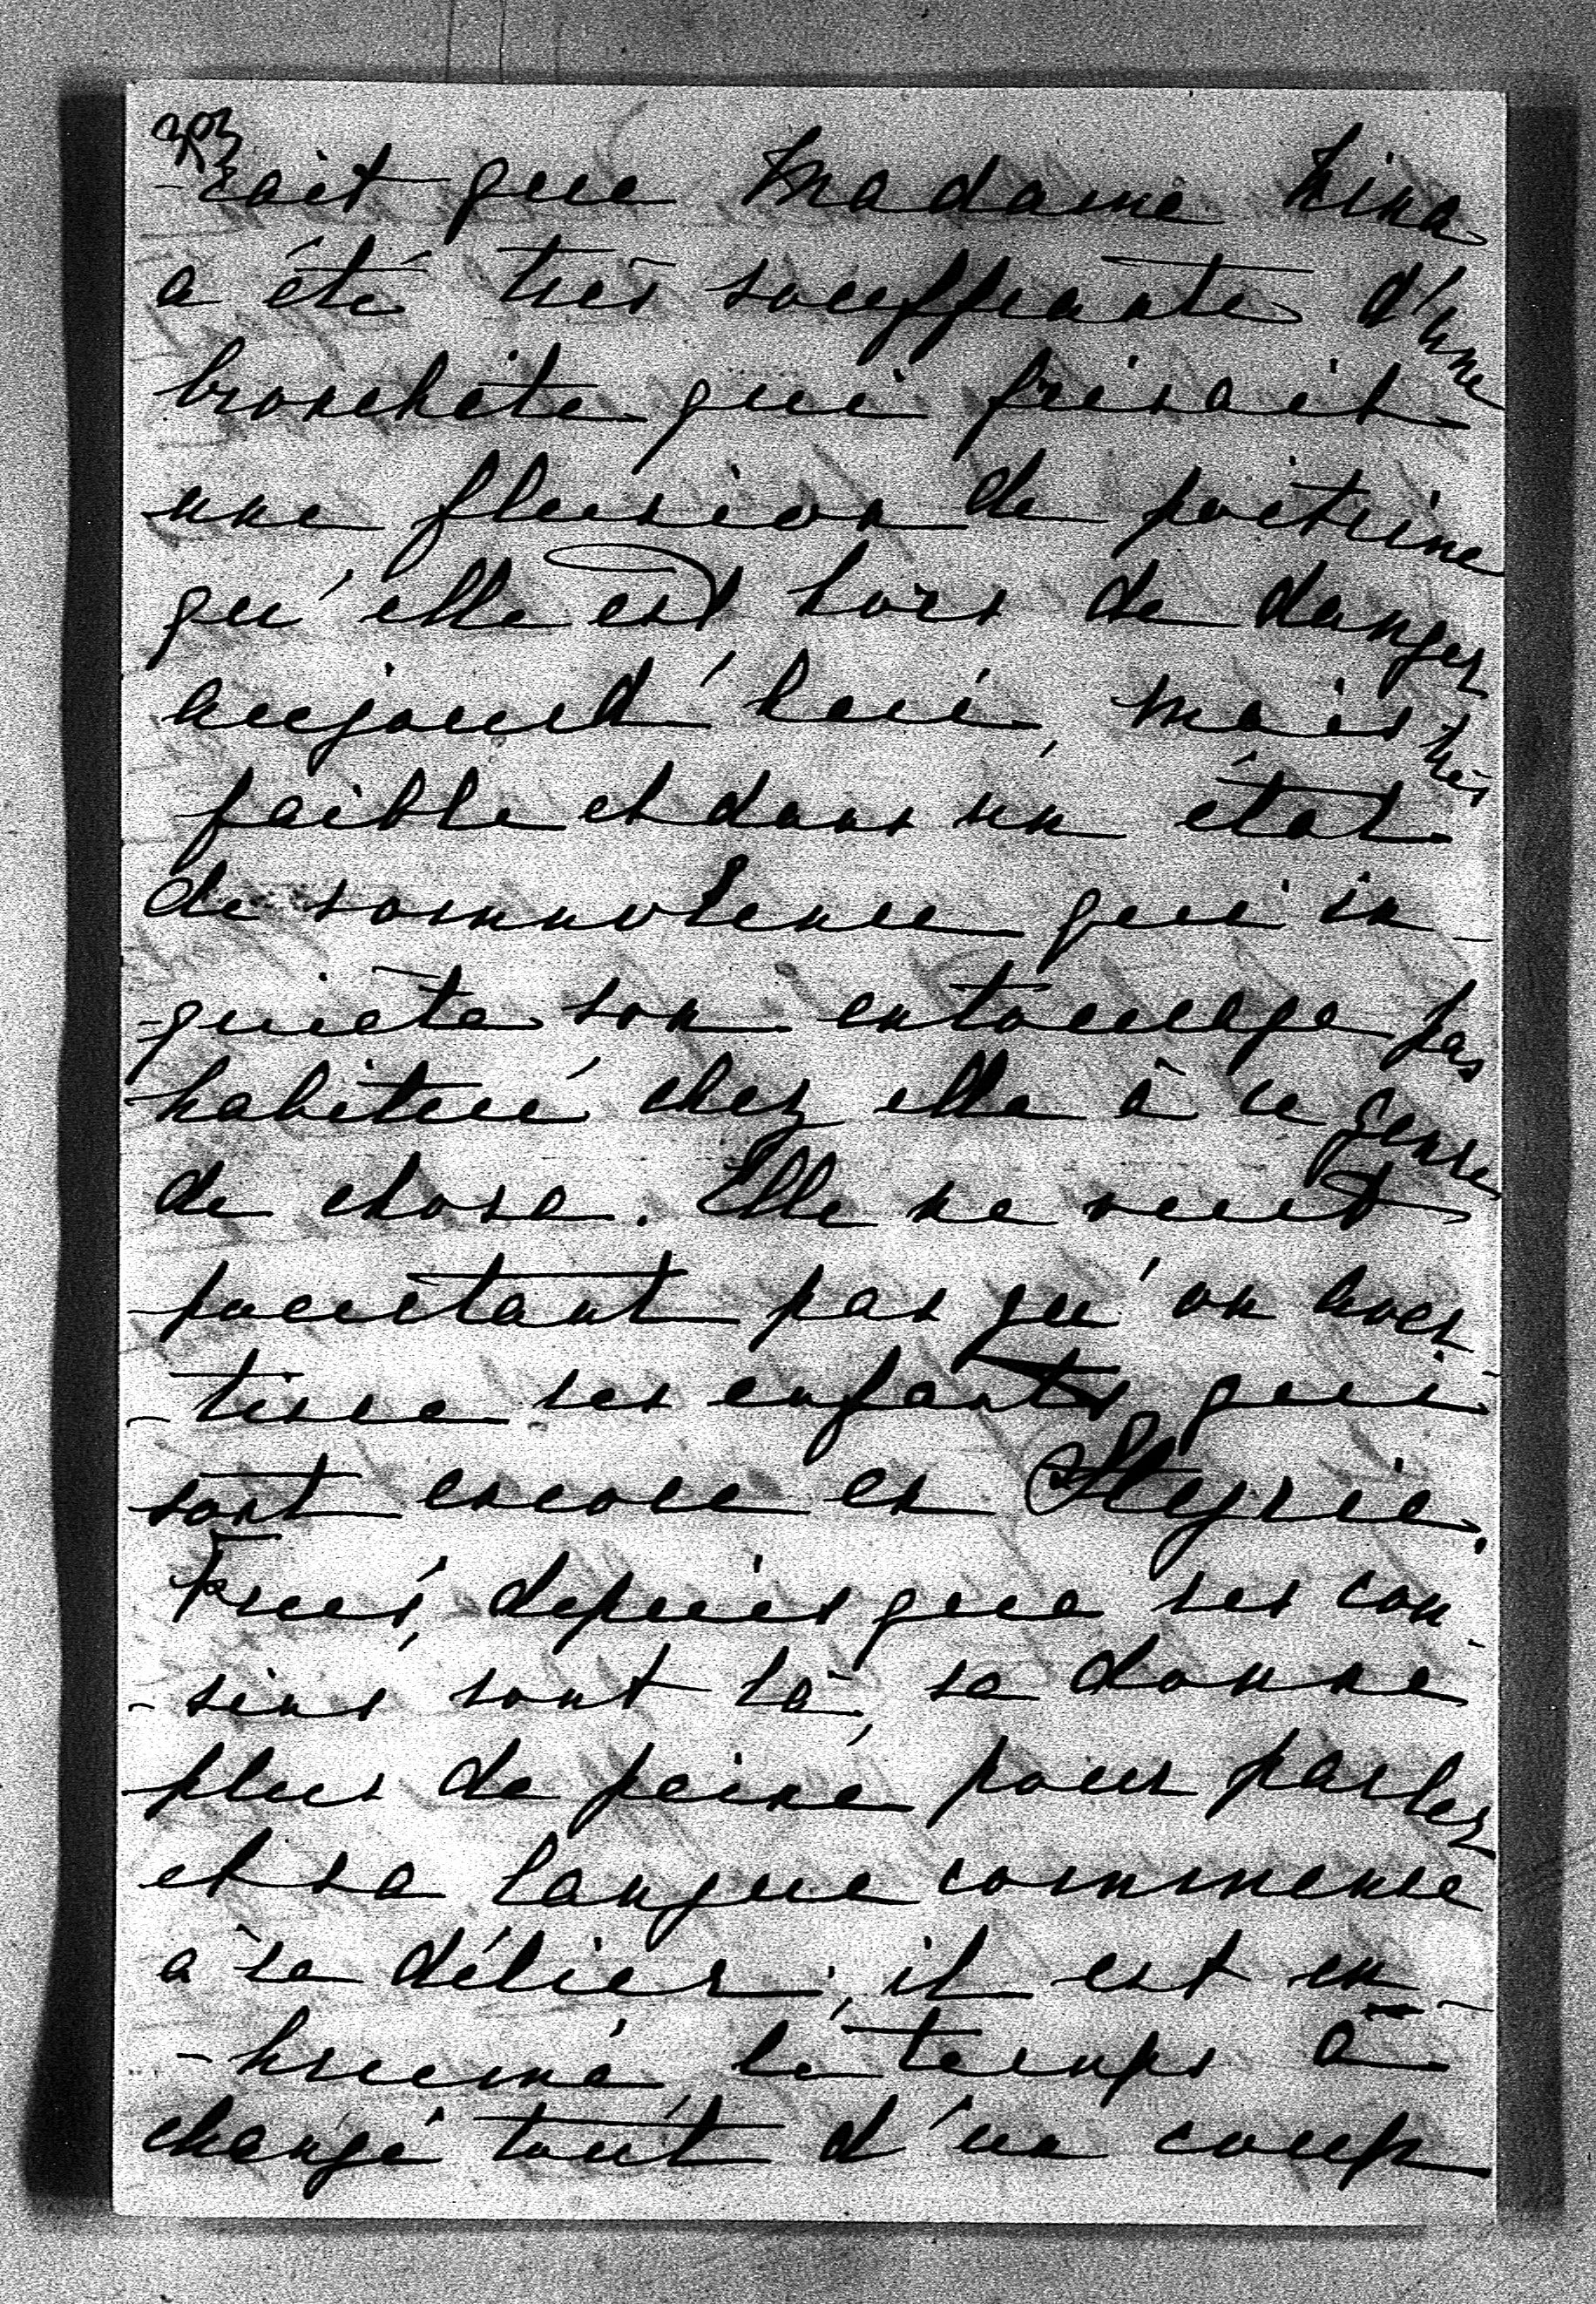 -rait que Madame Lina
a été très souffrante d'une
bronchite qui frisait
une fluxion de poitrine
qu'elle est hors de danger
aujourd'hui, mais très
faible et dans un état
de somnolence qui in-
-quiète son entourage pas
habitué chez elle à ce genre
de chose. Elle ne veut
pourtant pas qu'on aver-
-tisse ses enfants qui
sont encore en Styrie.
depuis que ses cou-
-sins sont là, se donne
plus de peine pour parler
et sa langue commence
à se délier; il est en-
-rhumé, le temps a
changé tout d'un coup